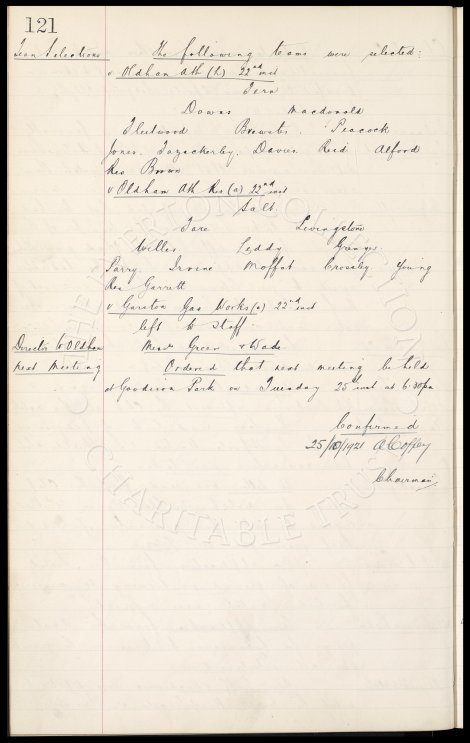 121
Team Selections The following teams were selected:
v Oldham Ath (h) 22nd inst
Fern
Downs Macdonald
Fleetwood Brewster Peacock
Jones Fazackerley Davies Reid Alford
Res Brown
v Oldham Ath Res (a) 22nd inst
Salt
Tare Livingstone
Willis Leddy Grange
Parry Irvine Moffat Crossley Young
Res Garrett
v Garston Gas Works (a) 22nd inst
left to staff
Director to Oldham Messrs Green & Wade
next Meeting Ordered that next meeting be held
at Goodison Park on Tuesday 25th inst at 6.30pm
Confirmed
25/10/1921 A Coffey
Chairman
THE EVERTON COLLECTION
CHARITABLE TRUST